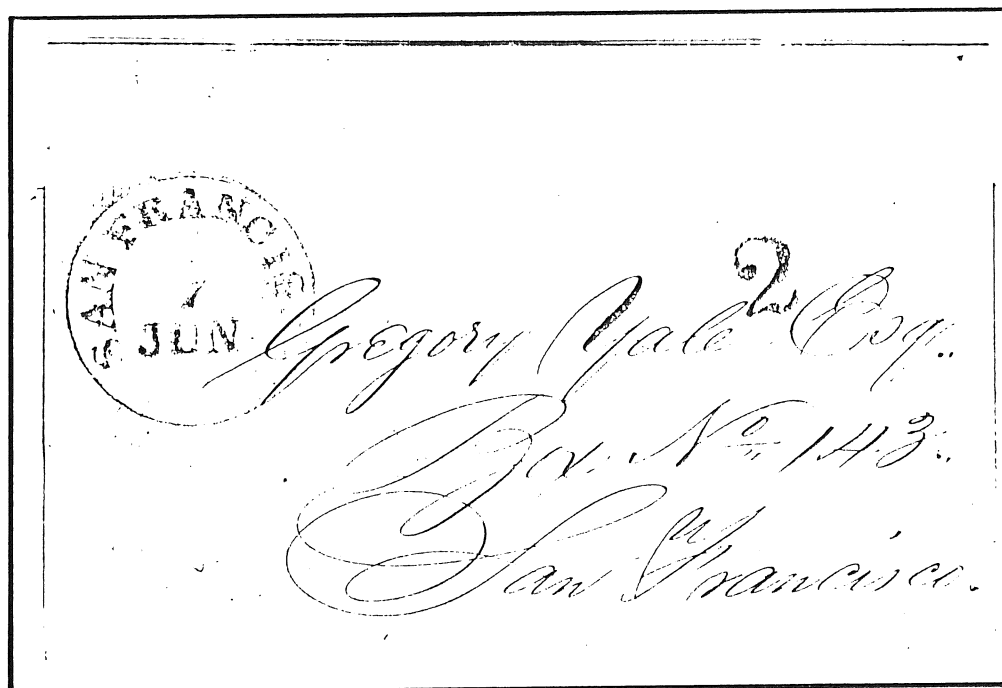 SAN FRANCIS
JUN
2
Gregory Yale Esq.
Box. No. 143.
San Francisco.